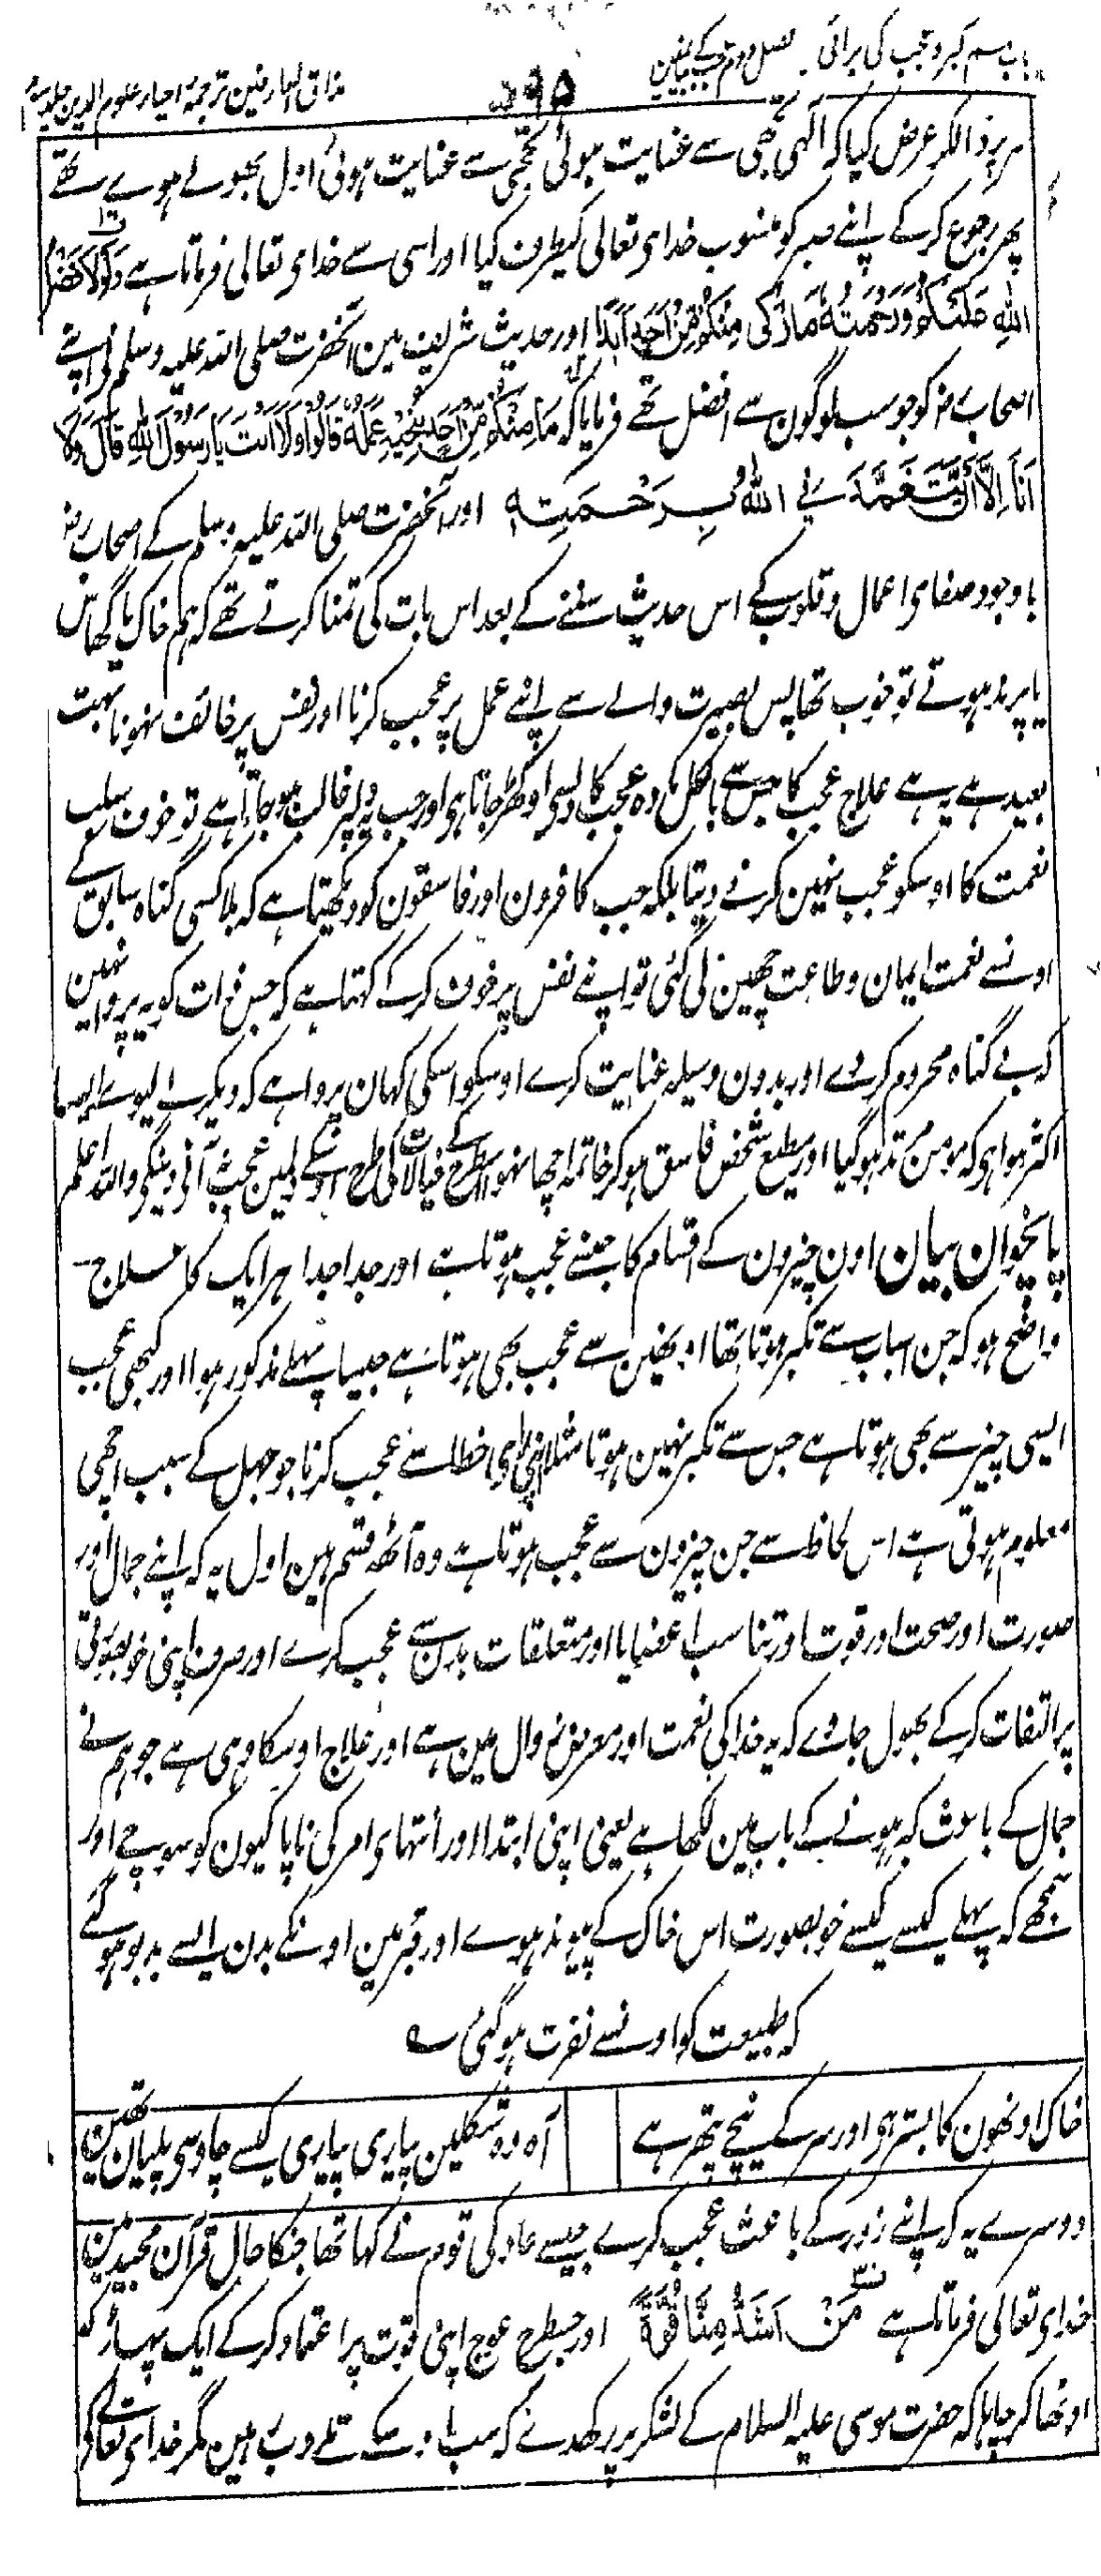 باب نہم کبر و عجب کی برائی . فصل دوم عجب کے بیان مین
۵۹۵
مذاق العارفین ترجمہ احیاء علوم الدین جلد سوم
سر پر ڈالکر عرض کیا کہ الٰہی تجھی سے عنایت ہوئی تجھی سے عنایت ہوئی اول بھولے ہوے تھے
پھر رجوع کرکے اپنے صبر کو منسوب خداے تعالی کیطرف کیا اور اسی سے خداے تعالی فرماتا ہے وَلَوْلَا فَضْلُ
اللهِ عَلَيْكُمْ وَرَحْمَتُهُ مَا زَكٰى مِنْكُمْ مِنْ اَحَدٍ اَبَدًا اور حدیث شریف مین آنحضرت صلی اللہ علیہ وسلم نے اپنے
اصحاب رض کو جو سب لوگون سے افضل تھے فرمایا کہ مَا مِنْكُمْ مِنْ اَحَدٍ يُنْجِيْهِ عَمَلُهٗ قَالُوْا وَلَا اَنْتَ يَا رَسُوْلَ اللهِ قَالَ وَلَا
اَنَا اِلَّا اَنْ يَتَغَمَّدَنِيَ اللهُ بِرَحْمَتِهٖ اور آنحضرت صلی اللہ علیہ وسلم کے اصحاب رض
باوجود صفاے اعمال و قلوب کے اس حدیث سننے کے بعد اس بات کی تمنا کرتے تھے کہ ہم خاک یا گھاس
یا پرند ہوتے تو خوب تھا پس بصیرت والے سے اپنے عمل پر عجب کرنا اور نفس پر خائف نہونا بہت
بعید ہے یہ ہے علاج عجب کا جس سے بالکل مادہ عجب کا دلسے اوکھڑ جاتا ہی اور جب یہ دلپر غالب ہو جاتا ہے تو خوف سلب
نعمت کا اوسکو عجب نہین کرنے دیتا بلکہ جب کافرون اور فاسقون کو دیکھتا ہے کہ بلا کسی گناہ سابق کے
اونسے نعمت ایمان و طاعت چھین لی گئی تو اپنے نفس پر خوف کرکے کہتا ہے کہ جس ذات کو یہ پروا نہین
کہ بے گناہ محروم کردے اور بدون وسیلہ عنایت کرے اوسکو اسکی کہان پروا ہے کہ دیکر لے لیوے ایسا
اکثر ہوا ہی کہ مومن مرتد ہو گیا اور مطیع شخص فاسق ہو کر خاتمہ اچھا نہوا اسطرح کے خیالات کی طرح اونکے دلمین عجب نہ آنے دینگی واللہ اعلم
پانچوان بیان اون چیزون کے اقسام کا جنسے عجب ہوتا ہے اور جدا جدا ہر ایک کا علاج
واضح ہو کہ جن اسباب سے تکبر ہوتا تھا اونھین سے عجب بھی ہوتا ہے جیسا پہلے مذکور ہوا اور کبھی عجب
ایسی چیز سے بھی ہوتا ہے جس سے تکبر نہین ہوتا مثلا اپنی رای خطا سے عجب کرنا جو جہل کے سبب اچھی
معلوم ہوتی ہے اس لحاظ سے جن چیزون سے عجب ہوتا ہے وہ آٹھ قسم ہین اول یہ کہ اپنے جمال اور
صورت اور صحت اور قوت اور تناسب اعضا یا اور متعلقات بدن سے عجب کرے اور صرف اپنی خوبصورتی
پر التفات کرکے بھول جاوے کہ یہ خدا کی نعمت اور معرض زوال مین ہے اور علاج اوسکا وہی ہے جو ہم نے
جمال کے باعث کبر ہونے کے باب مین لکھا ہے یعنی اپنی ابتدا اور انتہاے امر کی ناپاکیون کو سوچے اور
سمجھے کہ پہلے کیسے کیسے خوبصورت اس خاک کے پیوند ہوے اور قبر مین اونکے بدن ایسے بدبو ہو گئے
کہ طبیعت کو اونسے نفرت ہو گئی ؎
خاک اونھون کا بستر ہی اور سر کے نیچے پتھر ہے
آہ وہ شکلین پیاری پیاری کیسے چاو سی پلیان تھین
دوسرے یہ کہ اپنے زور کے باعث عجب کرے جیسے عاد کی قوم نے کہا تھا جنکا حال قرآن مجید مین
خداے تعالی فرماتا ہے مَنْ اَشَدُّ مِنَّا قُوَّةً اور جسطرح عوج اپنی قوت پر اعتماد کرکے ایک پہاڑ کو
اوٹھا کر چاہا کہ حضرت موسی علیہ السلام کے لشکر پر رکھدے کہ سب اوسکے تلے دب رہین مگر خداے تعالی نے